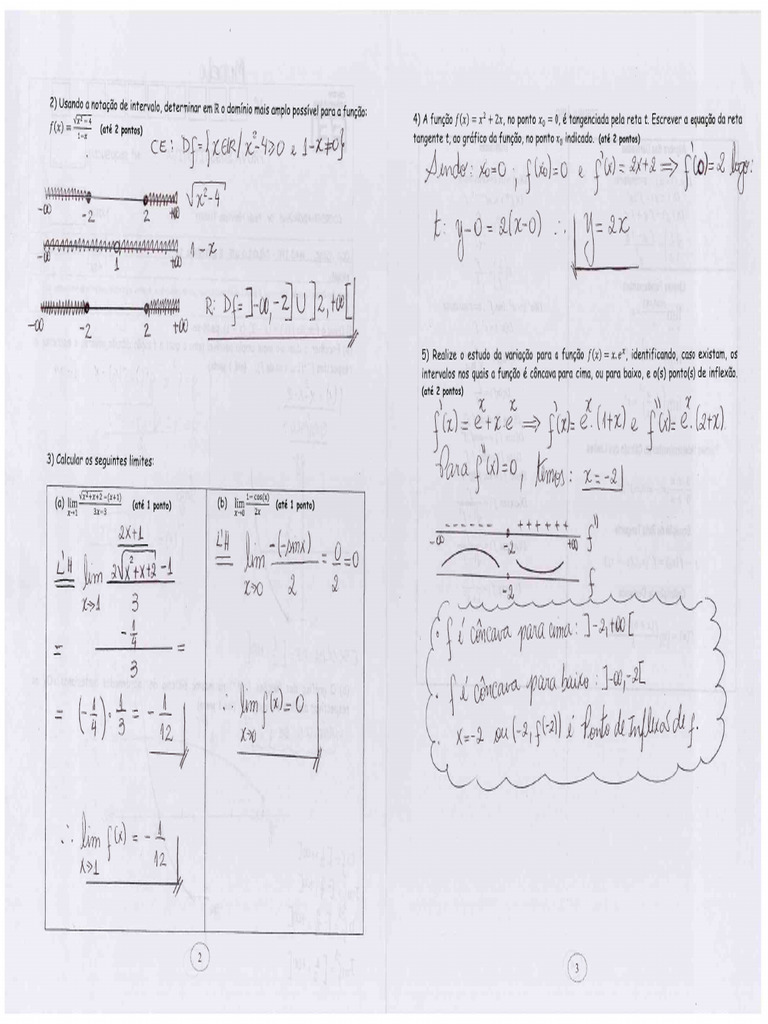 2) Usando a notação de intervalo, determinar em ℝ o domínio mais amplo possível para a função:
f(x) = √(x²−4)/(1−x) (até 2 pontos)
CE: Df={x∈IR/x²-4≥0 e 1-x≠0}
-∞ -2 2 +∞ √(x²-4)
-∞ 1 +∞ 1-x
-∞ -2 2 +∞
R: Df=]-∞,-2]U]2,+∞[
3) Calcular os seguintes limites:
(a) lim x→1 (√(x²+x+2)−(x+1))/(3x−3) (até 1 ponto)
L'H lim x→1 ((2x+1)/(2√(x²+x+2)) -1)/3
= (-1/4)/3 =
= (-1/4)·1/3 = -1/12
∴ lim x→1 f(x) = -1/12
(b) lim x→0 (1−cos(x))/(2x) (até 1 ponto)
L'H lim x→0 -(-senx)/2 = 0/2 = 0
∴ lim x→0 f(x) = 0
2
4) A função f(x) = x² + 2x, no ponto x₀ = 0, é tangenciada pela reta t. Escrever a equação da reta
tangente t, ao gráfico da função, no ponto x₀ indicado. (até 2 pontos)
Sendo: x₀=0 ; f(x₀)=0 e f'(x)=2x+2 ⇒ f'(0)=2 logo:
t: y-0=2(x-0) ∴ y=2x
5) Realize o estudo da variação para a função f(x) = x.eˣ, identificando, caso existam, os
intervalos nos quais a função é côncava para cima, ou para baixo, e o(s) ponto(s) de inflexão.
(até 2 pontos)
f'(x)=eˣ+x.eˣ ⇒ f'(x)=eˣ.(1+x) e f''(x)=eˣ.(2+x).
Para f''(x)=0, temos: x=-2
- - - - - - + + + + + +
-∞ -2 +∞ f''
-2 f
• f é côncava para cima: ]-2,+∞[
• f é côncava para baixo: ]-∞,-2[
• x=-2 ou (-2, f(-2)) é Ponto de Inflexão de f.
3